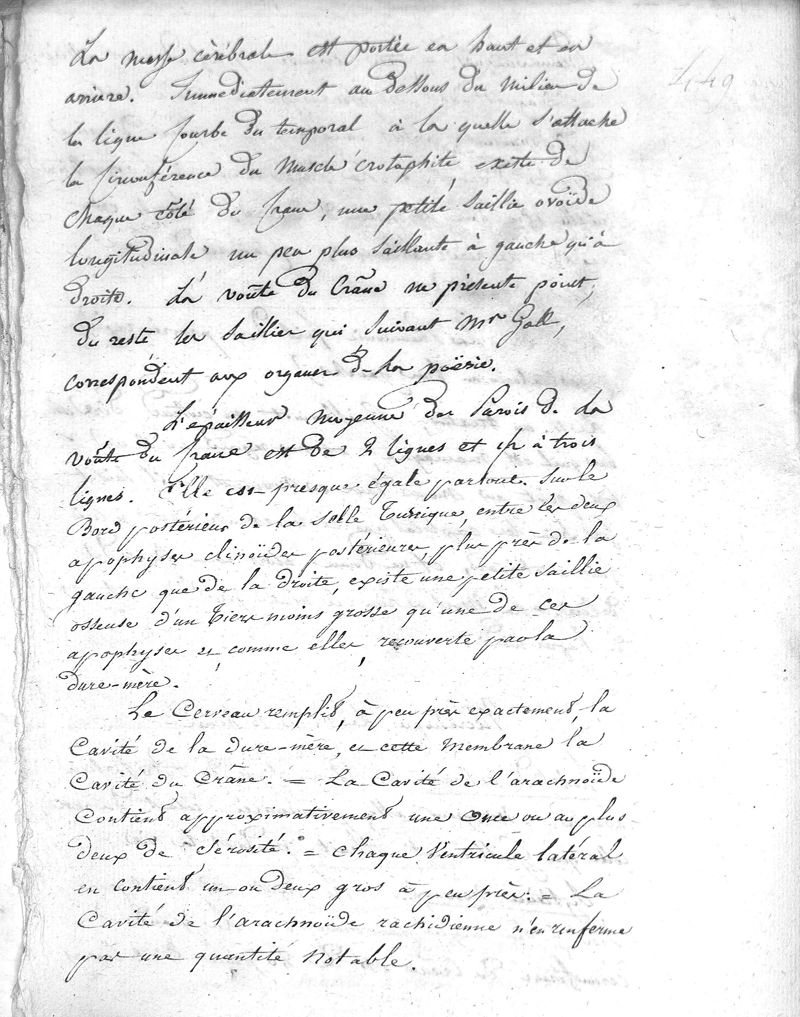 449
La masse cérébrale est portée en haut et en
arriere. Immediatement au dessous du milieu de
la ligne Courbe du temporal à la quelle s'attache
la Circonférence du Muscle crotaphite existe de
Chaque côté du Crane, une petite saillie ovoïde
longitudinale un peu plus saillante à gauche qu'à
droite. La voûte du Crâne ne présente point,
du reste les saillies qui suivant Mr Gall,
correspondent aux organes de la poësie.
L'épaisseur moyenne des Parois de la
voûte du Crane est de 2 lignes et à trois
lignes. Elle est presque égale partout. Sur le
Bord postérieur de la Selle Turcique, entre les deux
apophyses clinoïdes postérieures, plus près de la
gauche que de la droite, existe une petite saillie
osseuse d'un tiers moins grosse qu'une de ces
apophyses et comme elles, recouverte par la
dure-mère.
Le Cerveau remplit, à peu près exactement, la
Cavité de la dure-mère, et cette Membrane la
Cavité du Crâne. = La Cavité de l'arachnoïde
Contient approximativement une Once ou au plus
deux de Sérosité. = Chaque Ventricule latéral
en contient un ou deux gros à peu près. = La
Cavité de l'arachnoïde rachidienne n'en renferme
pas une quantité notable.